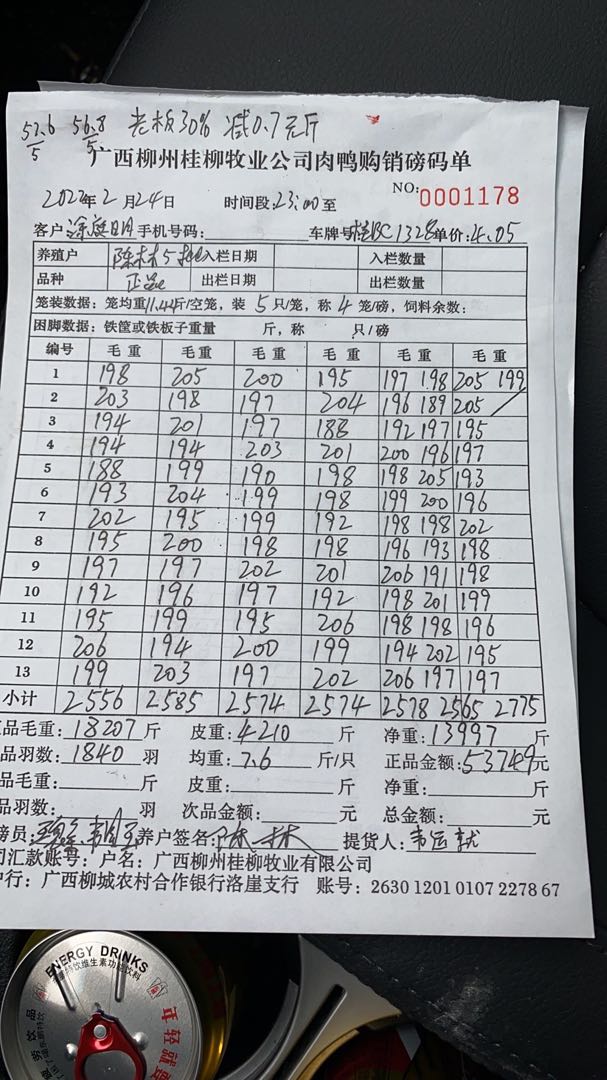 57.6/5 56.8/5 老板30% 减0.7元/斤
广西柳州桂柳牧业公司肉鸭购销磅码单
2022年2月24日 时间段:23:00至 NO:0001178
客户 涂庭明 手机号码: 车牌号 桂BC1328 单价:4.05
养殖户 入栏日期 入栏数量
品种 正品 出栏日期 出栏数量
笼装数据: 笼均重11.44斤/空笼, 装5只/笼, 称4笼/磅, 饲料余数:
困脚数据: 铁筐或铁板子重量 斤, 称 只/磅
编号 毛重 毛重 毛重 毛重 毛重 毛重
1 198 205 200 195 197 198 205 199
2 203 198 197 204 196 189 205
3 194 201 197 188 192 197 195
4 194 194 203 201 200 196 197
5 188 199 190 198 198 205 193
6 193 204 199 198 199 200 196
7 202 195 199 192 198 198 202
8 195 200 198 198 196 193 198
9 197 197 202 201 206 191 198
10 192 196 197 192 198 201 199
11 195 199 195 206 198 198 196
12 206 194 200 199 194 202 195
13 199 203 197 202 206 197 197
小计 2556 2585 2574 2574 2578 2565 2775
品毛重: 18207斤 皮重: 4210斤 净重: 13997斤
品羽数: 1840羽 均重: 7.6斤/只 正品金额: 53749元
品毛重: 斤 皮重: 斤 净重: 斤
品羽数: 羽 次品金额: 元 总金额: 元
磅员: 养户签名: 提货人: 韦运就
司汇款账号: 户名: 广西柳州桂柳牧业有限公司
户行: 广西柳城农村合作银行洛崖支行 账号: 2630 1201 0107 2278 67
ENERGY DRINKS
维生素功能饮料
年轻就